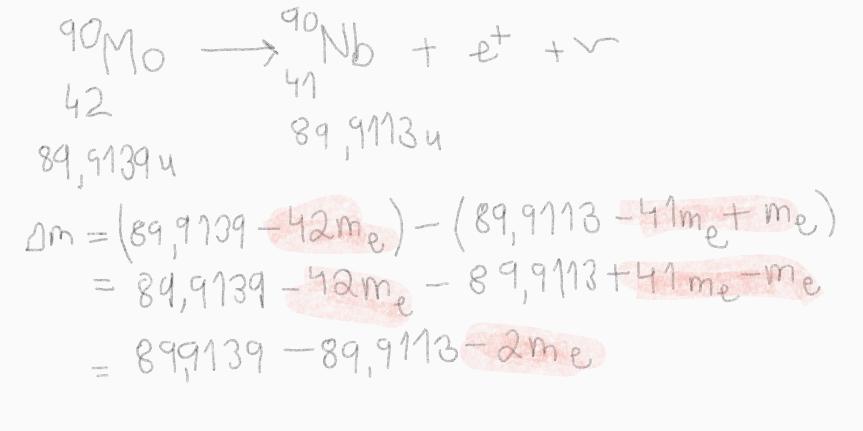 ⁹⁰Mo → ⁹⁰Nb + e⁺ + ν
42 41
89,9139u 89,9113u
Δm = (89,9139 - 42mₑ) - (89,9113 - 41mₑ + mₑ)
= 89,9139 - 42mₑ - 89,9113 + 41mₑ - mₑ
= 899139 - 89,9113 - 2mₑ